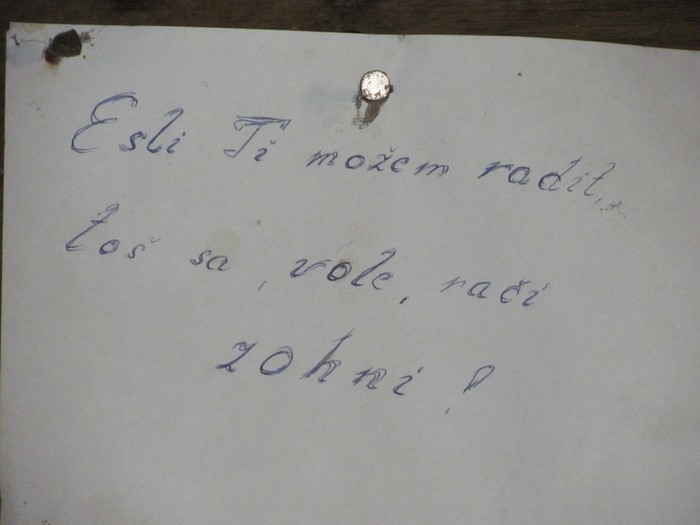 Esli Ti možem radit,
toš sa, vole, rači
zokni!